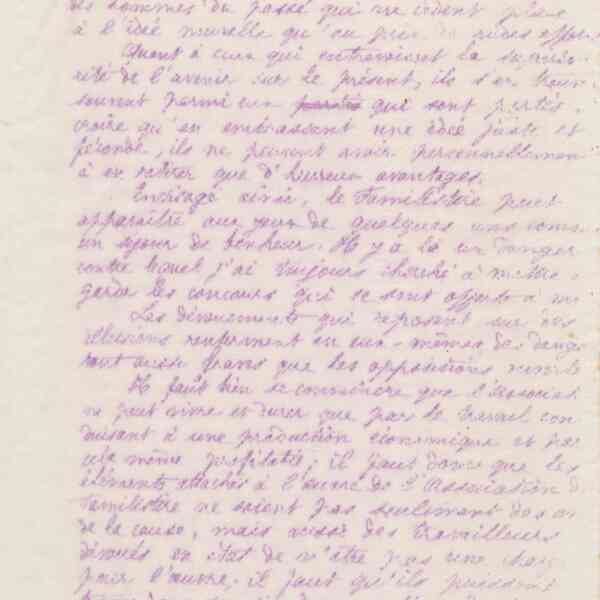 les hommes du passé qui ne cèdent
à l'idée nouvelle qu'au prix de rudes
Quant à ceux qui entrevoient la supério-
rité de l'avenir sur le présent, ils s'en trou-
parmi eux qui sont portés
croire qu'en embrassant une idée juste et
féconde, ils ne peuvent avoir personnellement
à en retirer que d'heureux avantages.
Envisagé ainsi, le Familistère peut
apparaître aux yeux de quelques uns comme
un séjour de bonheur. Il y a là un danger
contre lequel j'ai toujours cherché à mettre
garde les concours qui se sont offerts à moi
Les dévouements qui reposent sur des
illusions renferment en eux-mêmes des dangers
tout aussi grands que les oppositions
Il faut bien se convaincre que l'Association
ne peut vivre et durer que par le travail con
duisant à une production économique et par
cela même profitable; il faut donc que les
éléments attachés à l'œuvre de l'Association d
Familistère ne soient pas seulement des
de la cause, mais aussi des travailleurs
dévoués en état de n'être pas une charge
pour l'œuvre; il faut qu'ils puissent